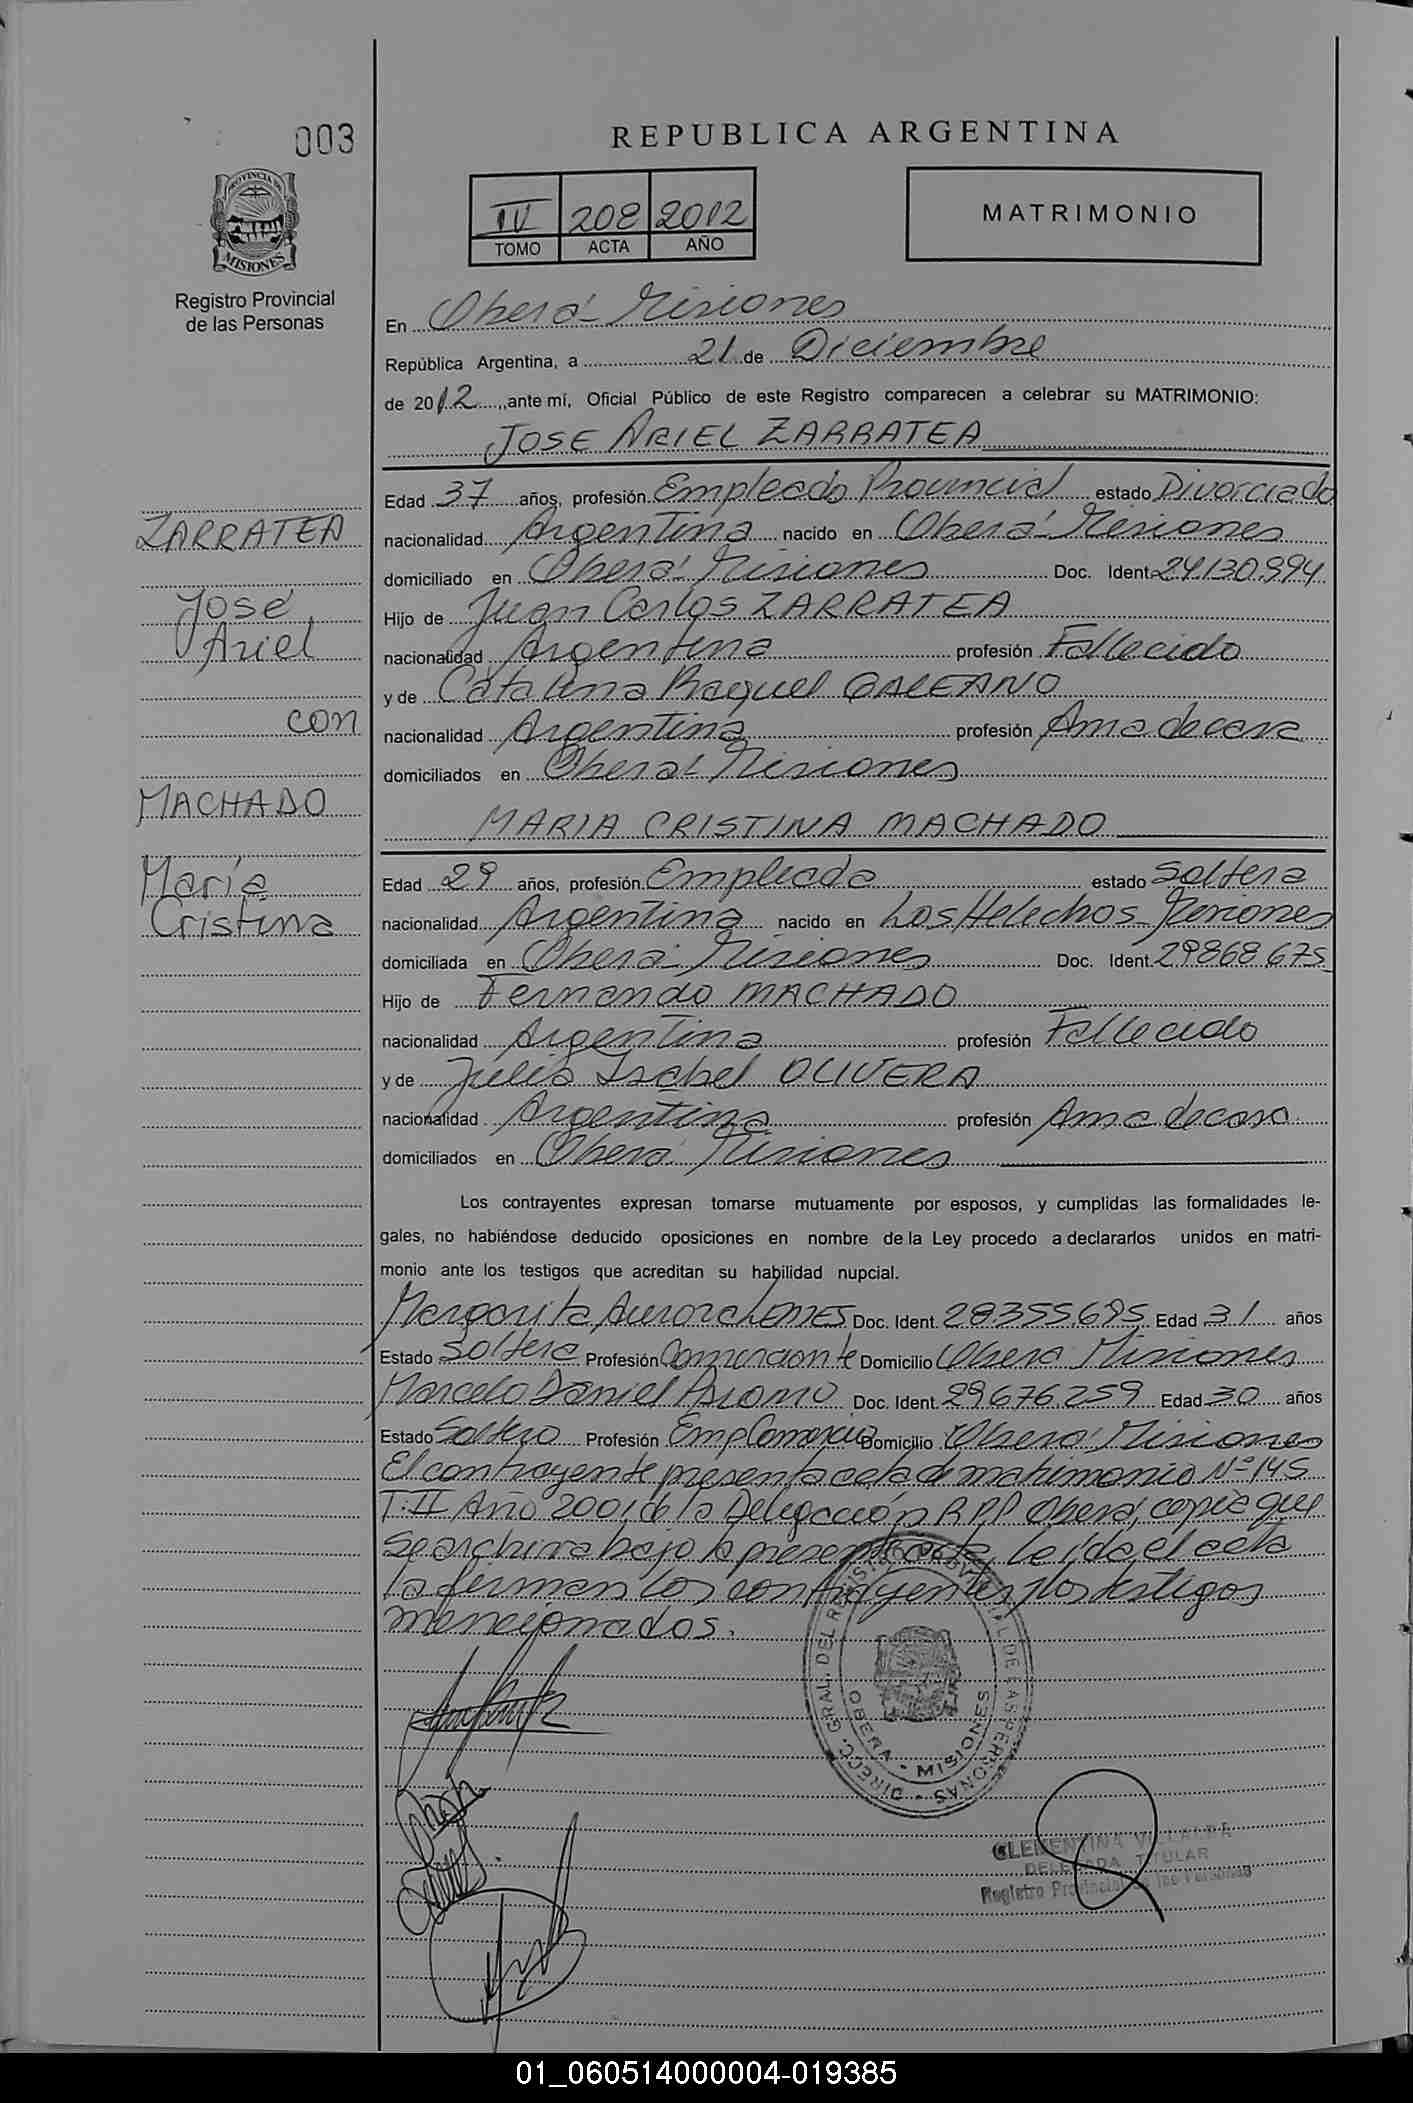 003
REPUBLICA ARGENTINA
IV 208 2012
TOMO ACTA AÑO
MATRIMONIO
PROVINCIA DE
MISIONES
Registro Provincial
de las Personas
En Oberá - Misiones
República Argentina, a 21 de Diciembre
de 2012, ante mí, Oficial Público de este Registro comparecen a celebrar su MATRIMONIO:
JOSE ARIEL ZARRATEA
Edad 37 años, profesión Empleado Provincial estado Divorciado
nacionalidad Argentina nacido en Oberá - Misiones
domiciliado en Oberá - Misiones Doc. Ident. 24.130.994
Hijo de Juan Carlos ZARRATEA
nacionalidad Argentina profesión Fallecido
y de Catalina Raquel GALEANO
nacionalidad Argentina profesión Ama de casa
domiciliados en Oberá - Misiones
ZARRATEA
José
Ariel
con
MACHADO
María
Cristina
MARIA CRISTINA MACHADO
Edad 29 años, profesión Empleada estado Soltera
nacionalidad Argentina nacido en Los Helechos - Misiones
domiciliada en Oberá - Misiones Doc. Ident. 29.868.675
Hijo de Fernando MACHADO
nacionalidad Argentina profesión Fallecido
y de Julia Isabel OLIVERA
nacionalidad Argentina profesión Ama de casa
domiciliados en Oberá - Misiones
Los contrayentes expresan tomarse mutuamente por esposos, y cumplidas las formalidades le-
gales, no habiéndose deducido oposiciones en nombre de la Ley procedo a declararlos unidos en matri-
monio ante los testigos que acreditan su habilidad nupcial.
Margarita Doc. Ident. 28.355.695 Edad 31 años
Estado Soltera Profesión Comerciante Domicilio Oberá Misiones
Marcelo Daniel Doc. Ident. 29.676.259 Edad 30 años
Estado Soltero Profesión Emp Comercio Domicilio Oberá - Misiones
El contrayente presenta acta de matrimonio Nº 145
T: II Año 2001 de la Delegación R.P.P Oberá, copia que
se archiva bajo la presente acta. Leída el acta
la firman los contrayentes y los testigos
mencionados.
DIRECC. GRAL. DEL REGISTRO PROVINCIAL DE LAS PERSONAS
OBERA - MISIONES
CLEMENTINA VILLALBA
DELEGADA TITULAR
Registro Provincial de las Personas
01_060514000004-019385